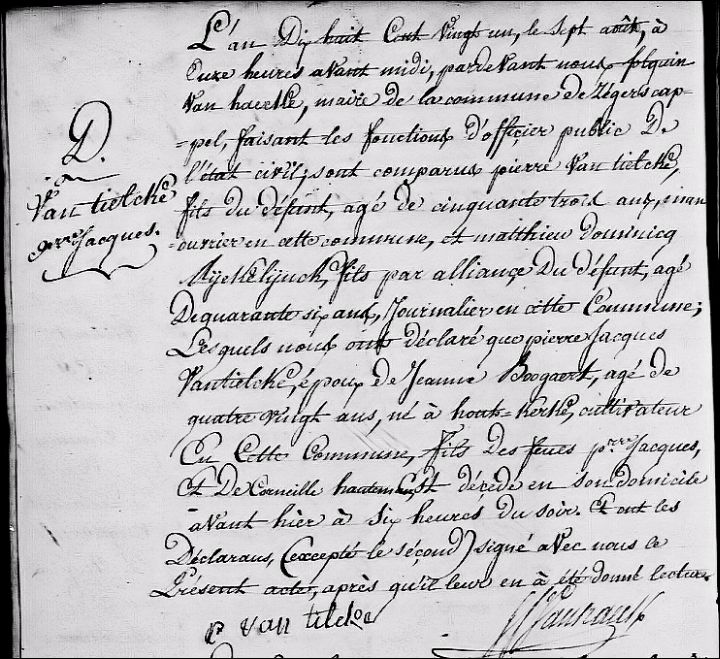 L'an Dix huit Cent vingt un, le sept août, à
Onze heures avant midi, pardevant nous folquin
Van haecke, maire de la commune de Zégerscap-
=pel, faisant les fonctions d'officier public De
l'état civil; sont comparus pierre Van tielcke,
fils du défunt, agé de cinquante trois ans,
ouvrier en cette commune, et matthieu Dominicq
fils par alliance Du défunt, agé
De quarante six ans, Journalier en cette Commune;
Lesquels nous ont déclaré que pierre Jacques
Vantielcke, époux de Jeanne Boogaert, agé de
quatre vingt ans, né à hout-kerke, cultivateur
En Cette Commune, fils Des feues prre Jacques,
Et De Corneille est décédé en son domicile
avant hier à six heures du soir. Et ont les
Déclarans, (excepté le second) signé avec nous le
Présent acte, après qu'il leur en à été donné lecture
D.
Van tielcke
prre Jacques.
p van tilcke